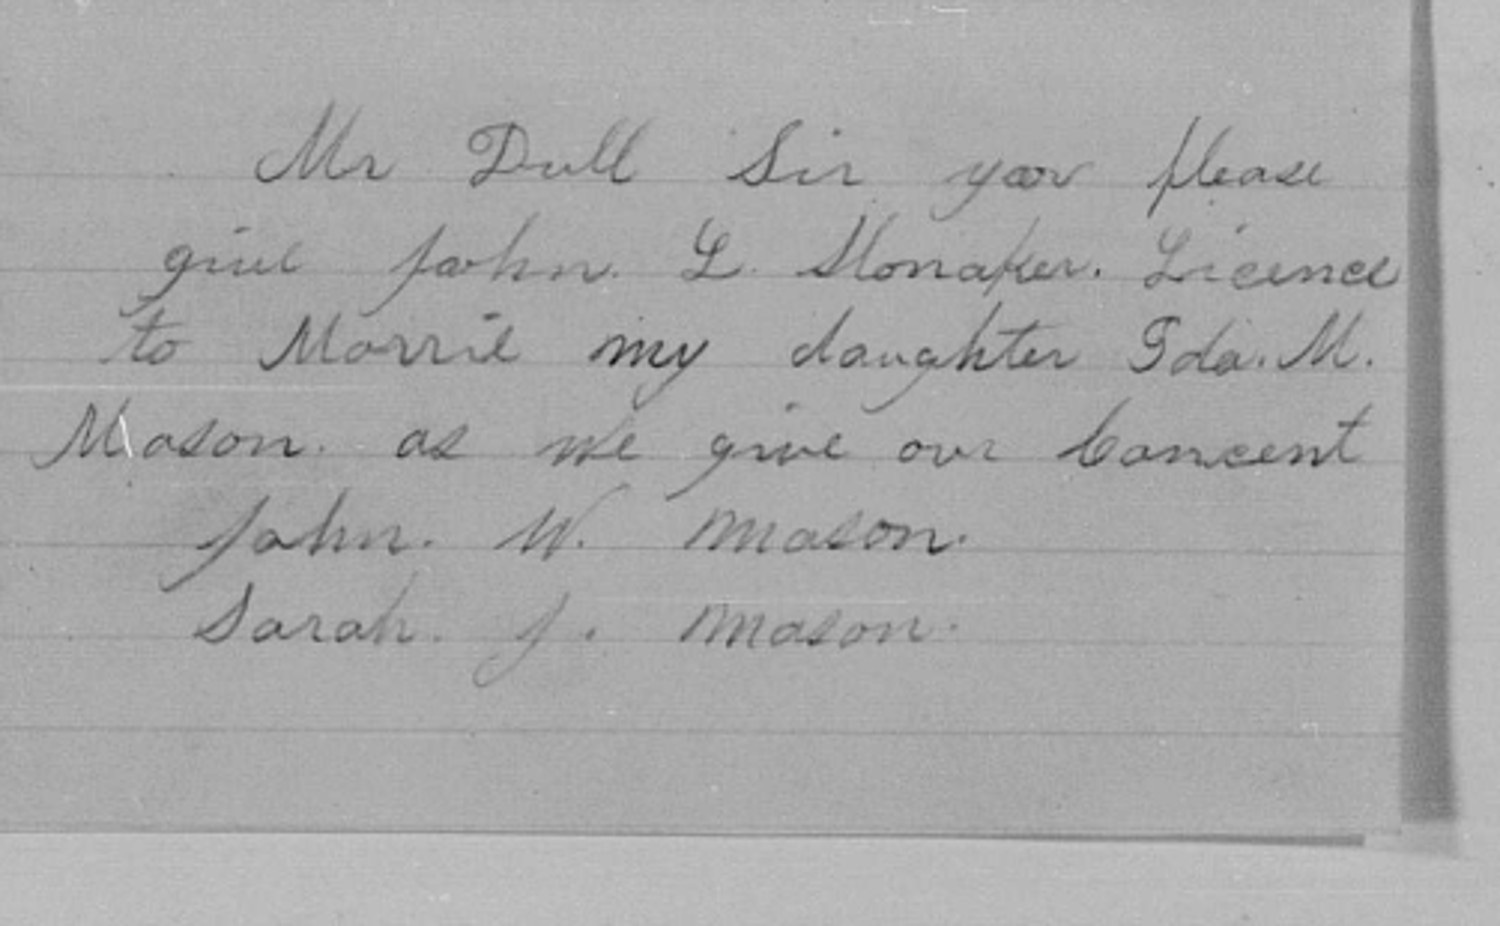 Mr Dull Sir you please
give John. L. Slonaker. Licence
to Marrie my daughter Ida. M.
Mason. as we give our Concent
John. W. Mason.
Sarah. J. Mason.